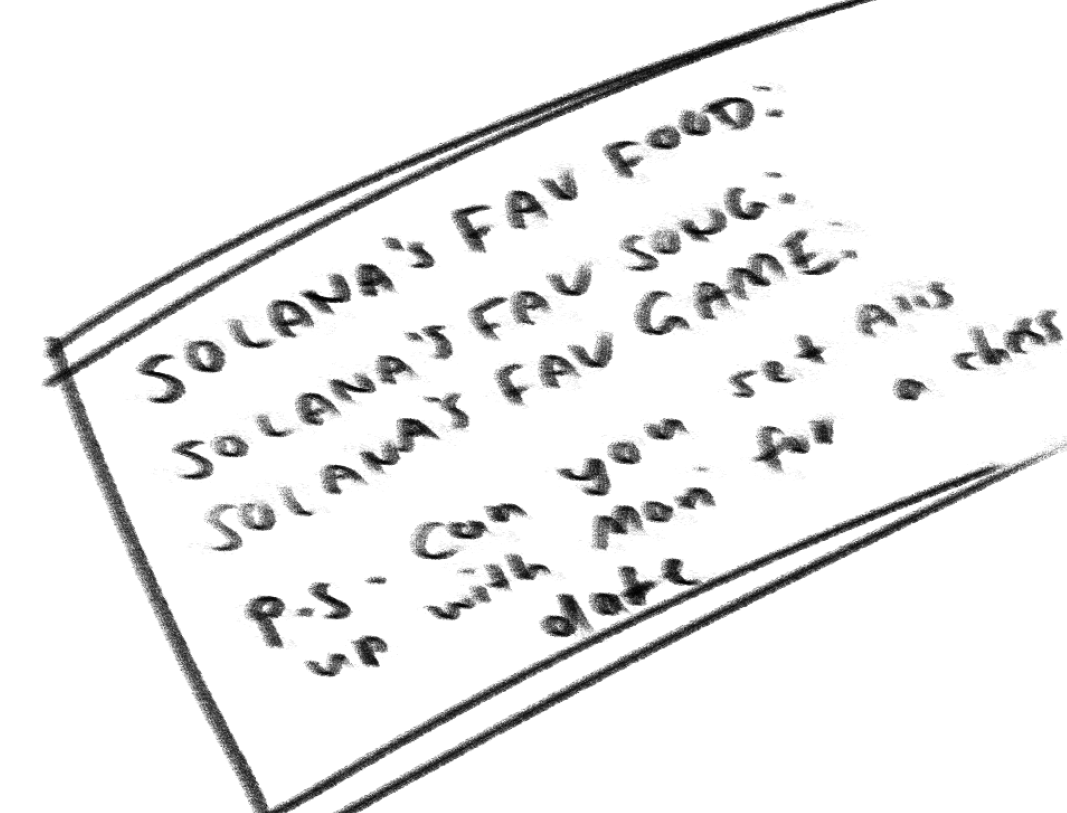 SOLANA'S FAV FOOD:
SOLANA'S FAV SONG:
SOLANA'S FAV GAME:
P.S - Can you set Alis
up with Mon for a chess
date